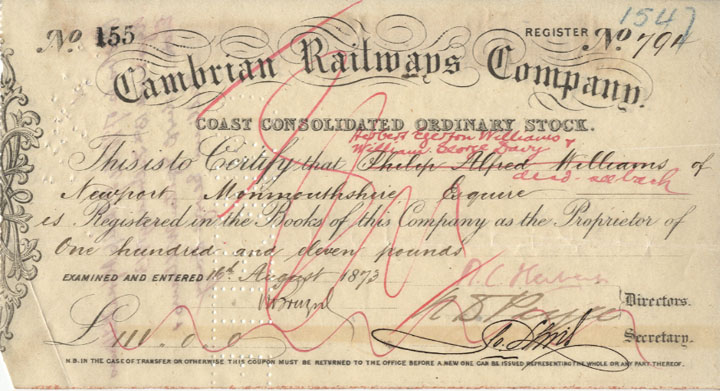 1547
No 155 REGISTER No 794
Cambrian Railways Company.
COAST CONSOLIDATED ORDINARY STOCK.
Herbert Egerton Williams &
William George Davy
This is to Certify that Philip Alfred Williams of
dead see back
Newport Monmouthshire Esquire
is Registered in the Books of this Company as the Proprietor of
One hundred and eleven pounds
EXAMINED AND ENTERED 16th August 1873
Directors.
£ 111. 0. 0 Secretary.
N.B. IN THE CASE OF TRANSFER OR OTHERWISE THIS COUPON MUST BE RETURNED TO THE OFFICE BEFORE A NEW ONE CAN BE ISSUED REPRESENTING THE WHOLE OR ANY PART THEREOF.